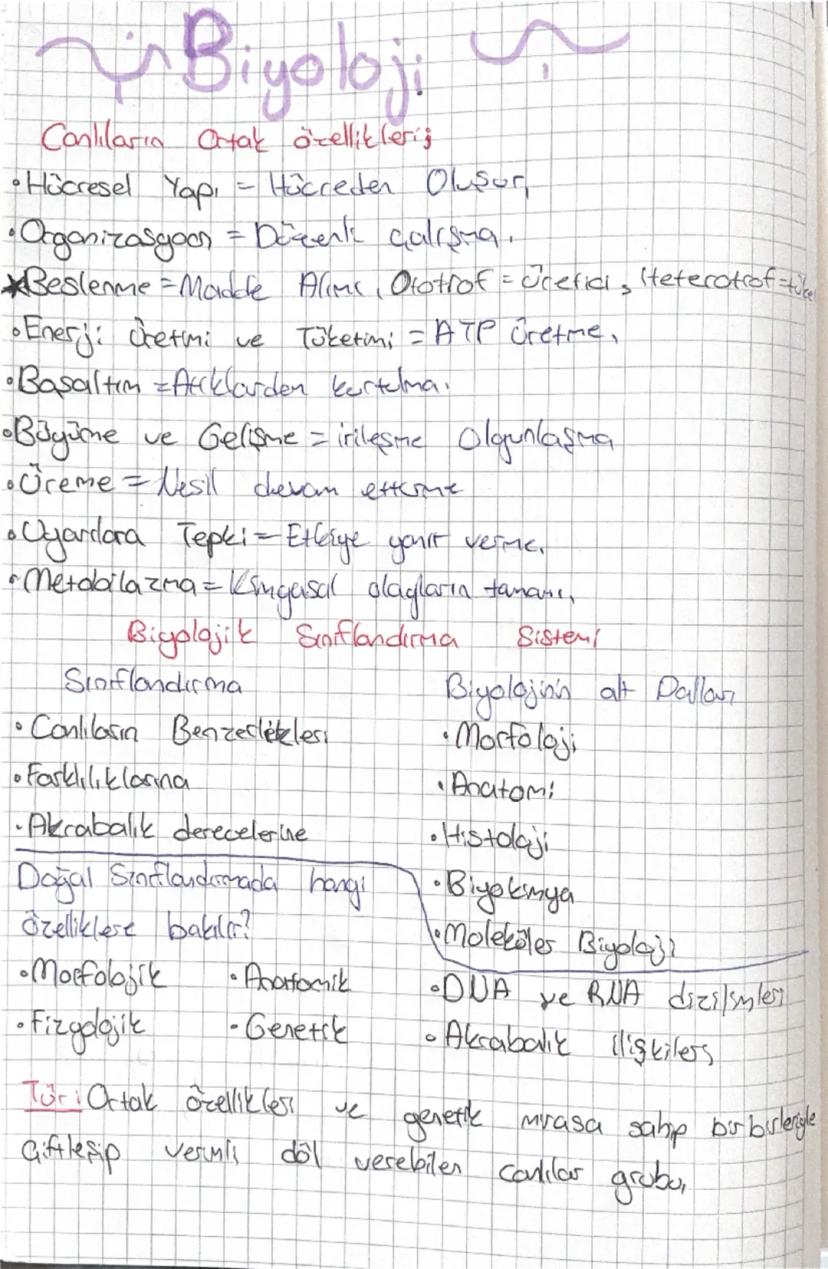 Biyoloji
Canlıların Ortak özellikleri;
• Hücresel Yapı = Hücreden Oluşur,
• Organizasyoon = Düzenli çalışma.
* Beslenme = Madde Alımı, Ototrof = üretici, Heterotrof = tüke
• Enerji üretimi ve Tüketimi = ATP üretme,
• Başaltım = Atıklardan kurtulma.
• Büyüme ve Gelişme = irileşme Olgunlaşma
• Üreme = Nesil devam ettirme
• Uyarılara Tepki = Etkiye yanıt verme,
• Metobilazma = Kimyasal olayların tamamı,
Biyolojik Sınıflandırma Sistemi
Sınıflandırma
• Canlıların Benzerlikleri
• Farklılıklarına
• Akrabalık derecelerine
Biyolojinin alt Dalları
• Morfoloji
• Anatomi
• Histoloji
• Biyokimya
• Moleküler Biyoloji
Doğal Sınıflandırmada hangi
özelliklere bakılır?
• Morfolojik • Anatomik • DNA ve RNA dizilimleri
• Fizyolojik • Genetik • Akrabalık ilişkileri,
Tür: Ortak özellikleri ve genetik mirasa sahip birbirleriyle
çiftleşip verimli döl verebilen canlılar grubu,